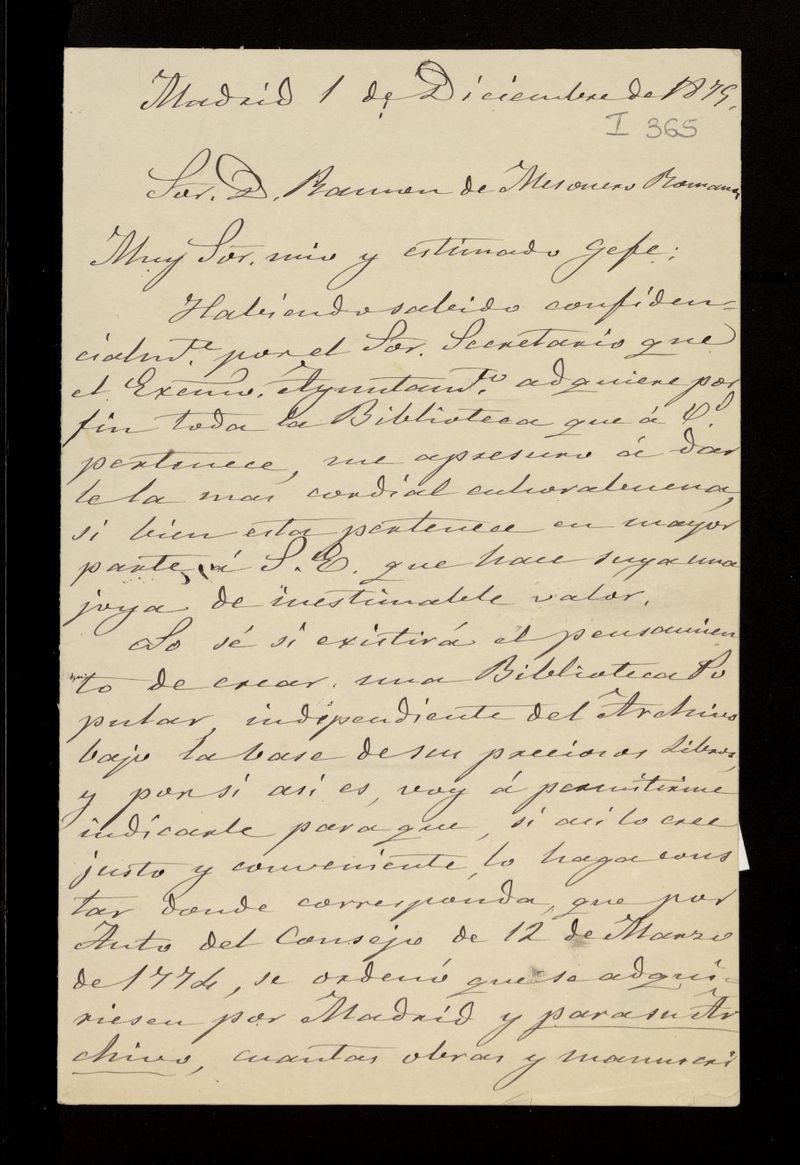 Madrid 1 de Diciembre de 1875.
I 365
Sor. D. Ramon de Mesonero Romanos
Muy Sor. mio y estimado Gefe:
Habiendo sabido confiden-
cialmte. por el Sor. Secretario que
el Excmo. Ayuntamto. adquiere por
fin toda la Biblioteca que á Vd.
pertenece, me apresuro á dar
le la mas cordial enhorabuena,
si bien esta pertenece en mayor
parte á S. E. que hace suya una
joya de inestimable valor.
No sé si existirá el pensamien
to de crear una Biblioteca Po
pular, independiente del Archivo
bajo la base de sus preciosos libros,
y por si asi es, voy á permitirme
indicarle para que, si asi lo cree
justo y conveniente, lo haga cons
tar donde corresponda, que por
Auto del Consejo de 12 de Marzo
de 1774, se ordenó que se adqui-
riesen por Madrid y para su Ar
chivo, cuantas obras y manuscri